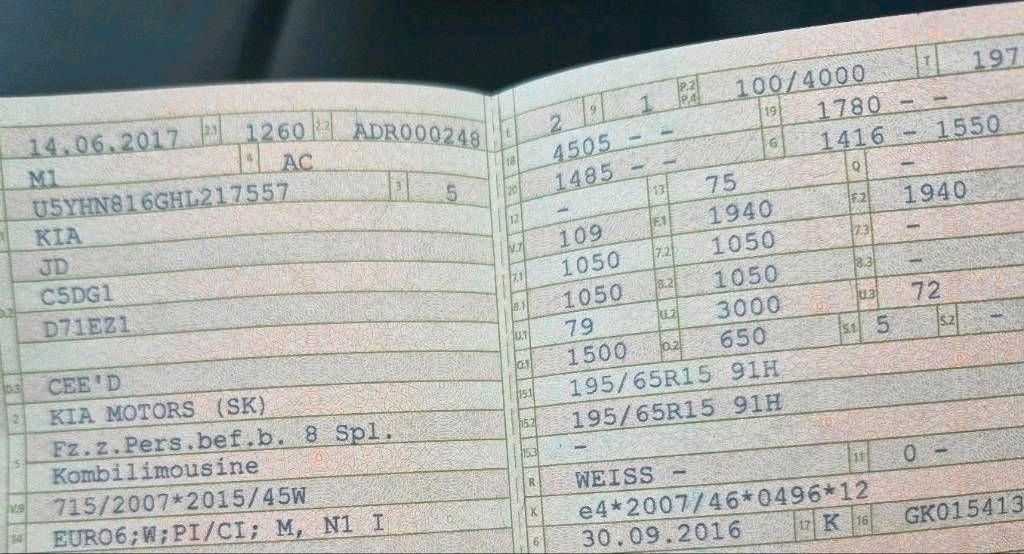 14.06.2017 2.1 1260 2.2 ADR000248
M1 4 AC
U5YHN816GHL217557 3 5
KIA
JD
D.2 C5DG1
D71EZ1
D.3 CEE'D
2 KIA MOTORS (SK)
Fz.z.Pers.bef.b. 8 Spl.
5 Kombilimousine
V.9 715/2007*2015/45W
14 EURO6;W;PI/CI; M, N1 I
L 2 9 1 P.2 P.4 100/4000 T 197
18 4505 - - 19 1780 - -
20 1485 - - G 1416 - 1550
12 - 13 75 Q -
V.7 109 F.1 1940 F.2 1940
7.1 1050 7.2 1050 7.3 -
8.1 1050 8.2 1050 8.3 -
U.1 79 U.2 3000 U.3 72
O.1 1500 O.2 650 S.1 5 S.2 -
15.1 195/65R15 91H
15.2 195/65R15 91H
15.3 -
R WEISS - 11 0 -
K e4*2007/46*0496*12
6 30.09.2016 17 K 16 GK015413